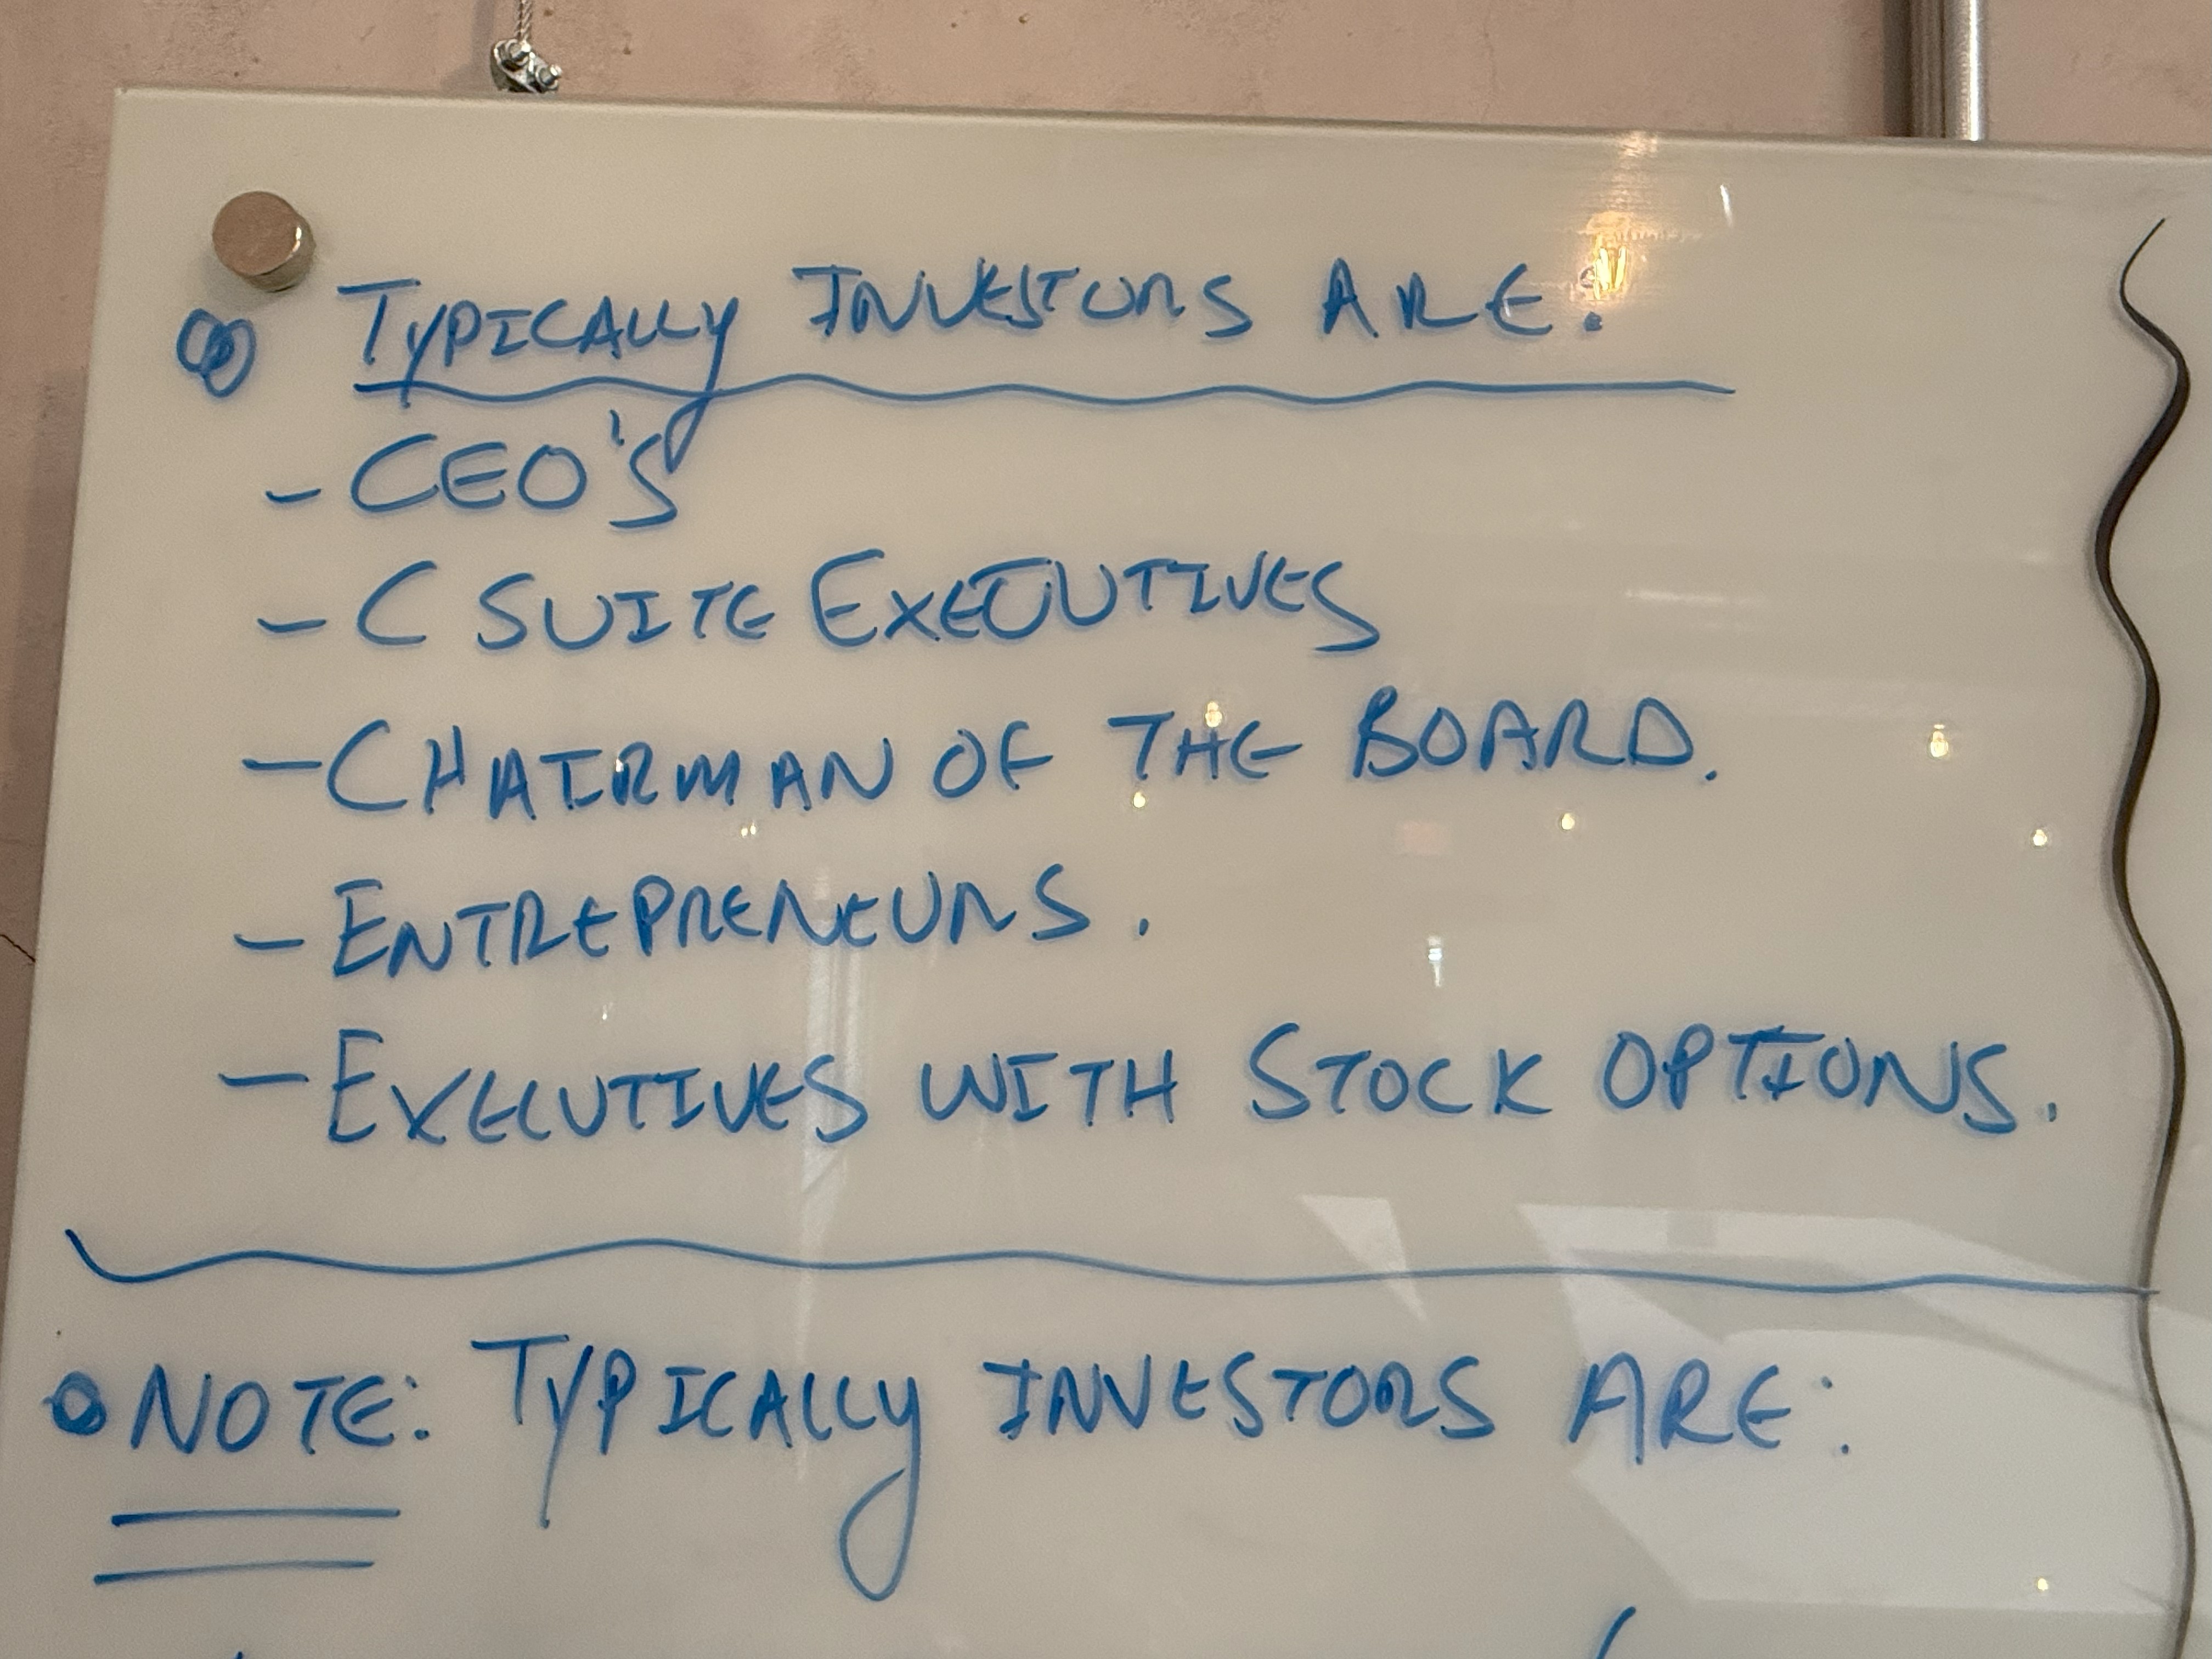 • TYPICALLY INVESTORS ARE:
- CEO'S
- C SUITE EXECUTIVES
- CHAIRMAN OF THE BOARD.
- ENTREPRENEURS.
- EXECUTIVES WITH STOCK OPTIONS.
• NOTE: TYPICALLY INVESTORS ARE: